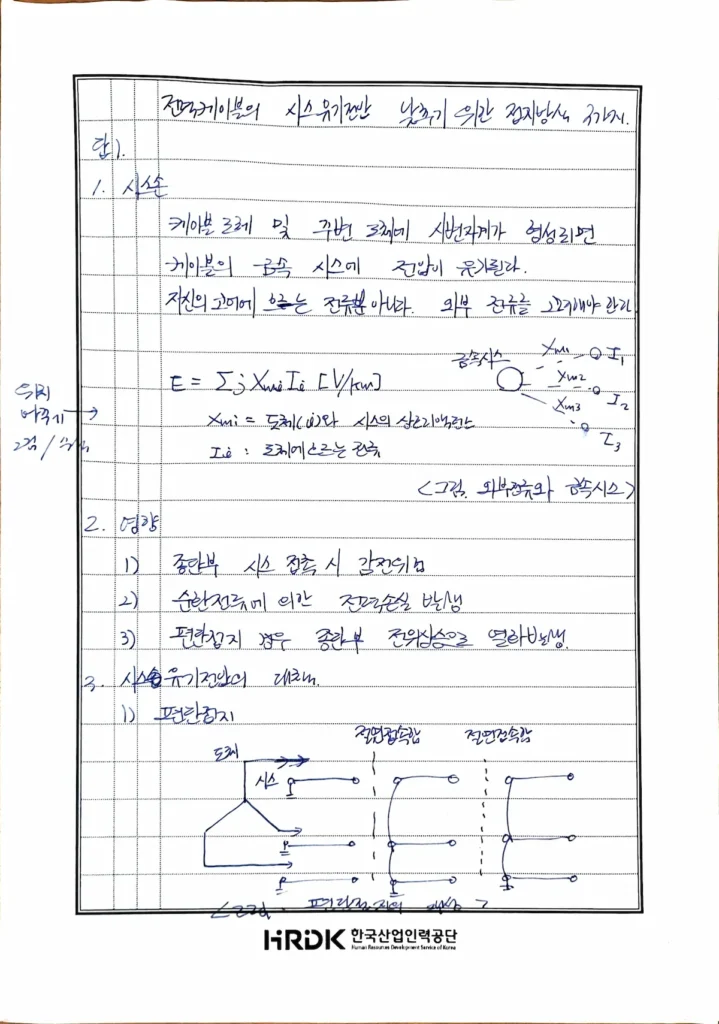 전력케이블의 시스유기전압 낮추기 위한 접지방식 3가지.
답).
1. 시스손
케이블 도체 및 주변 도체에 시변자계가 형성되면
케이블의 금속 시스에 전압이 유기된다.
자신의 고어에 흐르는 전류뿐 아니라. 외부 전류를 고려해야 한다
금속시스 Xm1 I₁
E = Σj Xmi Ii [V/km] Xm2 I₂
Xm3 I₃
위치
바꾸기 →
Xmi = 도체(i)와 시스의 상호리액턴스
Ii : 도체에 흐르는 전류
<그림. 외부전류와 금속시스>
2. 영향
1) 종단부 시스 접촉 시 감전위험
2) 순환전류에 의한 전력손실 발생
3) 편단접지 경우 종단부 전위상승으로 열화발생.
3. 시스유기전압의 대책.
1) 편단접지
절연접속함 절연접속함
도체
시스
<그림. 편단접지의 >
HRDK 한국산업인력공단
Human Resources Development Service of Korea